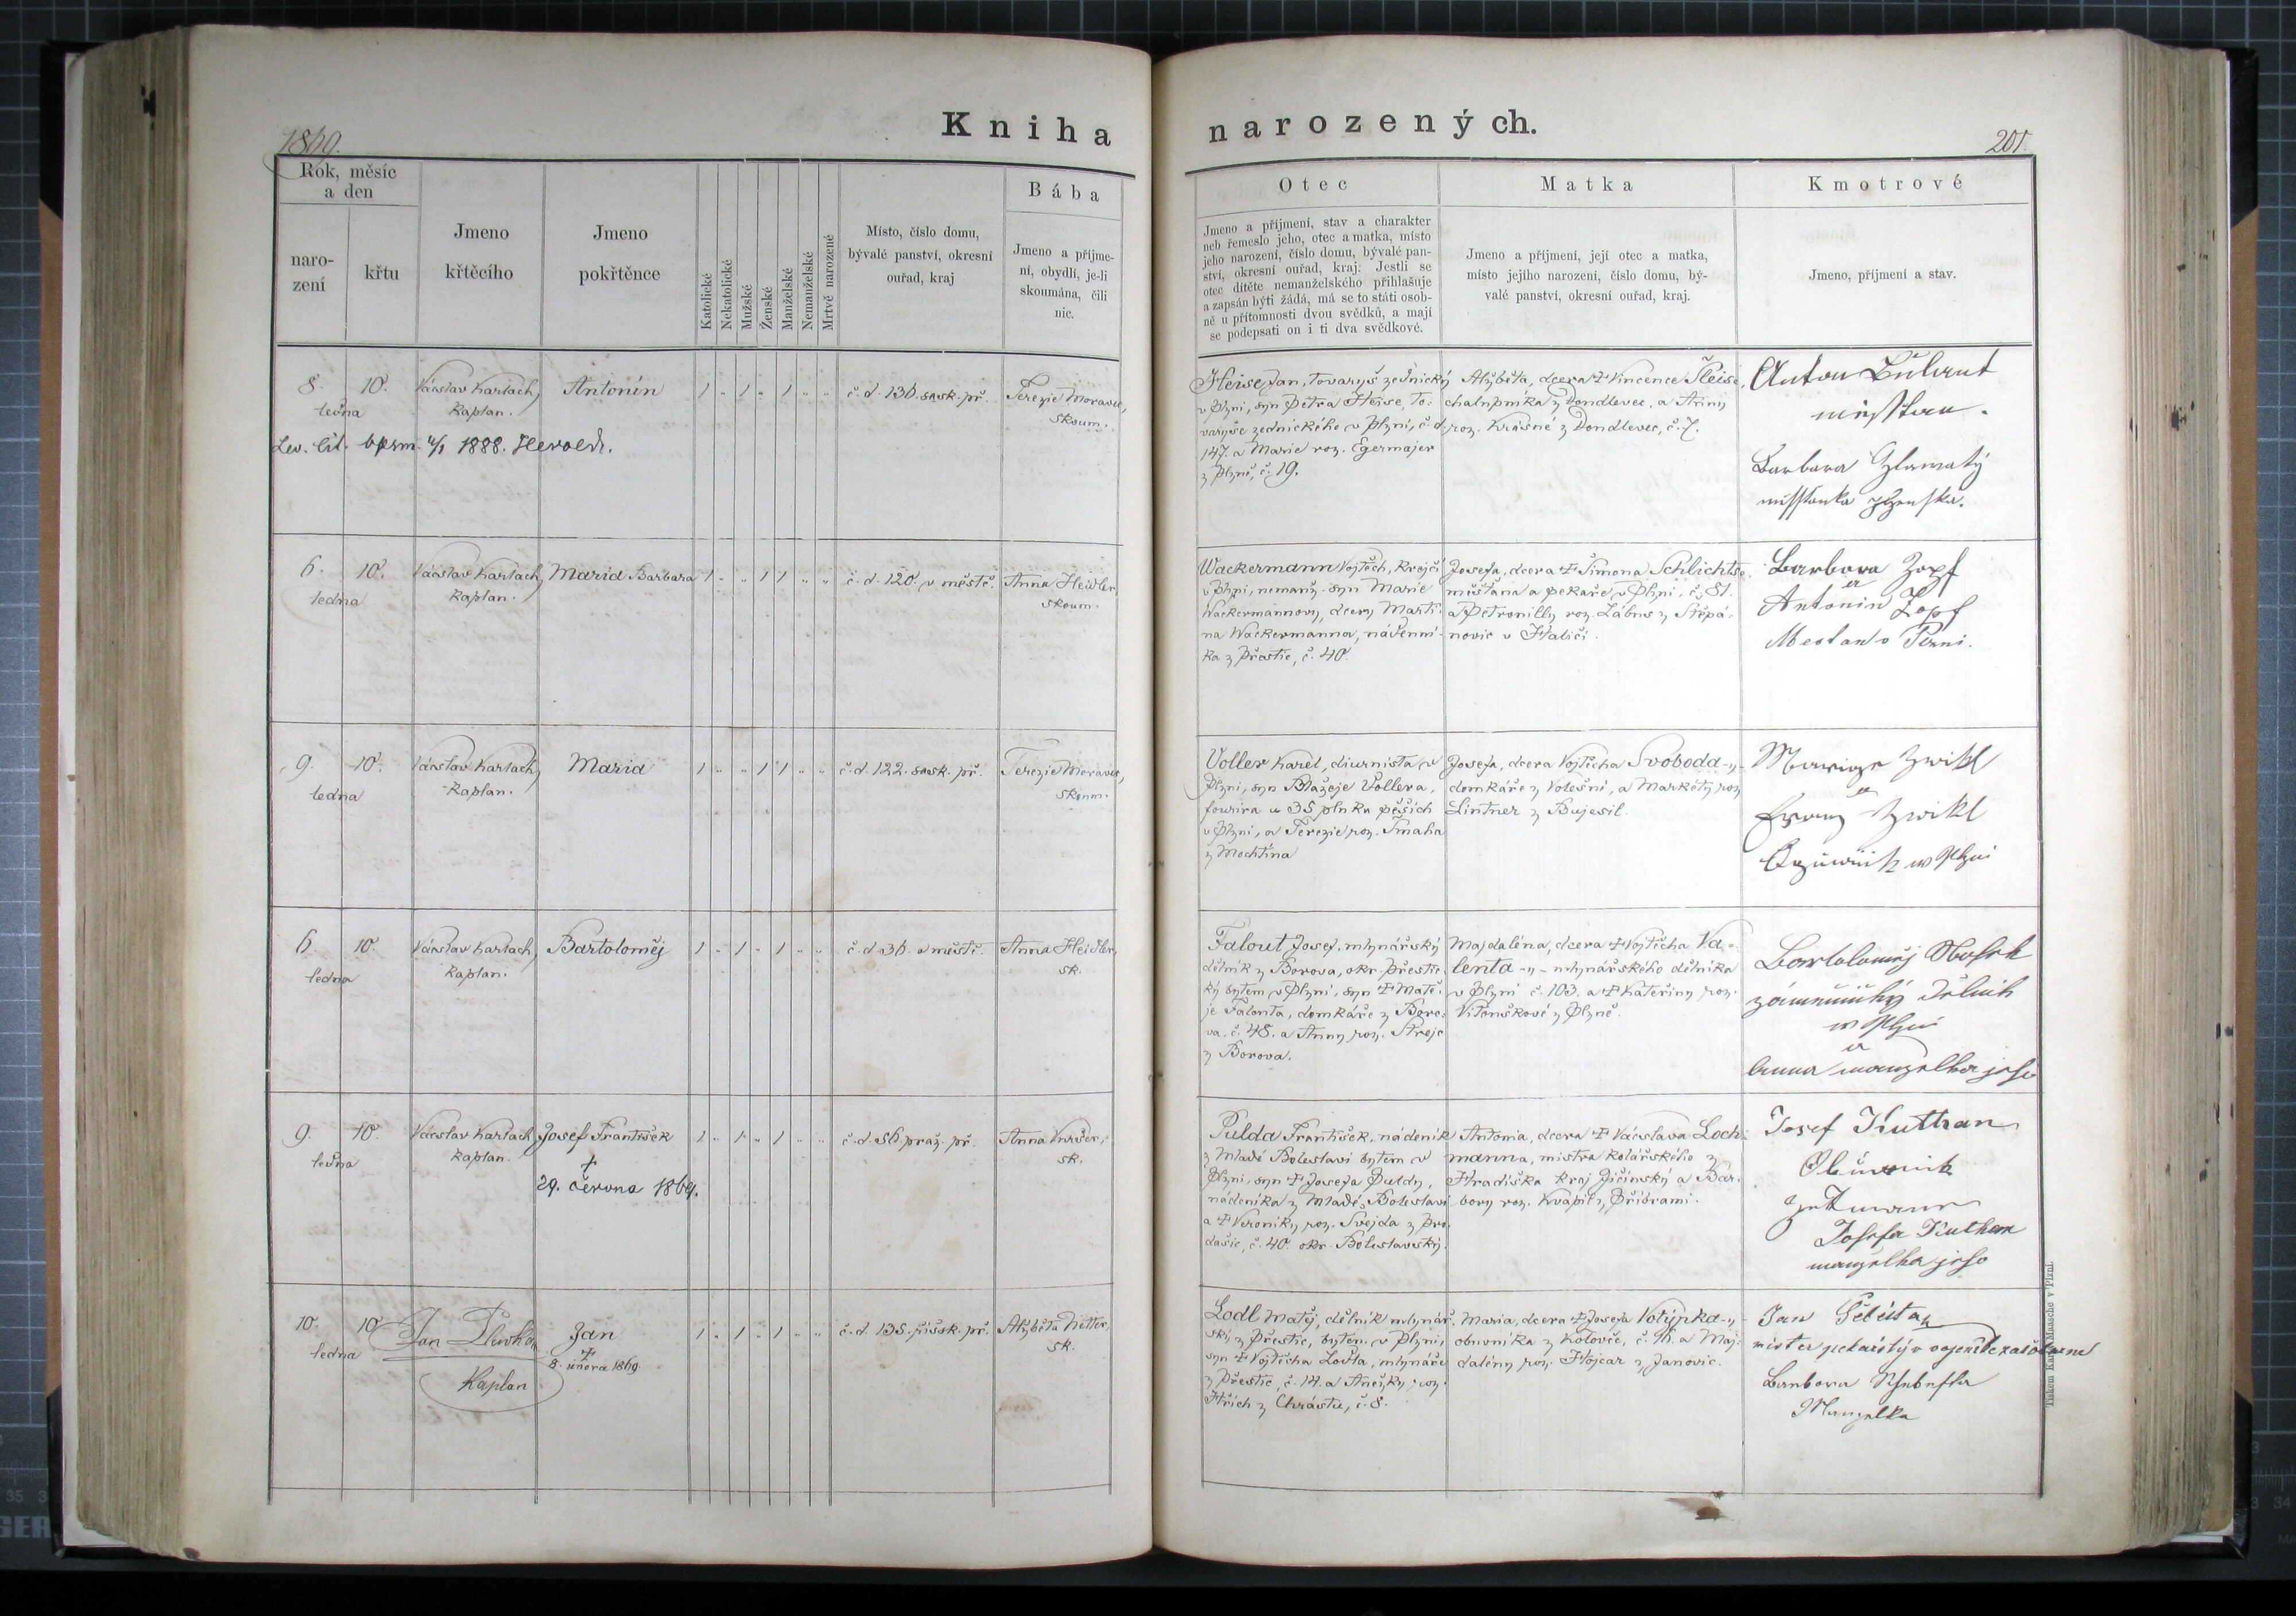 Kniha narozených.
1869.
201.
Rok, měsíc
a den
naro-
zení
křtu
Jmeno
křtěcího
Jmeno
pokřtěnce
Katolické
Nekatolické
Mužské
Ženské
Manželské
Nemanželské
Mrtvě narozené
Místo, číslo domu,
bývalé panství, okresní
ouřad, kraj
Bába
Jmeno a příjme-
ní, obydlí, je-li
skoumána, čili
nic.
Otec
Jmeno a příjmení, stav a charakter
neb řemeslo jeho, otec a matka, místo
jeho narození, číslo domu, bývalé pan-
ství, okresní ouřad, kraj. Jestli se
otec dítěte nemanželského přihlašuje
a zapsán býti žádá, má se to státi osob-
ně u přítomnosti dvou svědků, a mají
se podepsati on i ti dva svědkové.
Matka
Jmeno a příjmení, její otec a matka,
místo jejího narození, číslo domu, bý-
valé panství, okresní ouřad, kraj.
Kmotrové
Jmeno, příjmení a stav.
8. 10.
ledna
Václav Karlach,
kaplan.
Antonín
1 „ 1 „ 1 „ „
č. d. 136. sask. př.
Terezie Moravec,
skoum.
1888. Herold.
Heise Jan, tovaryš zednický
v Plzni, syn Petra Heise, to-
varyše zednického v Plzni, č. d.
147. a Marie roz. Egermajer
z Plzně, č. 19.
Alžběta, dcera † Vincence Fleise,
chalupníka z Dondlevec, a Anny
roz. Krásné z Dondlevec, č. 7.
Anton
Barbara
6. 10.
ledna
Václav Karlach,
kaplan.
Maria Barbara
1 „ „ 1 1 „ „
č. d. 120. v městě.
Anna Heidler,
skoum.
Wackermann Vojtěch, krejčí
v Plzni, nemanž. syn Marie
Wackermannovy, dcery Marti-
na Wackermanna, nádenní-
ka z Přestic, č. 40.
Josefa, dcera † Šimona Schlichtse
měšťana a pekaře v Plzni, č. 81.
a Petronilly roz. Lábus z Štěpá-
novic v Haliči.
Barbora Zopf
a
Antonin Zopf
9. 10.
ledna
Václav Karlach,
kaplan.
Maria
1 „ „ 1 1 „ „
č. d. 122. sask. př.
Terezie Moravec,
skoum.
Voller Karel, diurnista v
Plzni, syn Blažeje Vollera,
fourira u 35 pluku pěších
v Plzni, a Terezie roz. Šmaha
z Mochtína
Josefa, dcera Vojtěcha Svoboda -„-
domkáře z Volešní, a Markéty roz.
Lintner z Bujesil.
Zwikl
a
Franz Zwikl
6. 10.
ledna
Václav Karlach,
kaplan.
Bartoloměj
1 „ 1 „ 1 „ „
č. d. 36. v městě.
Anna Heidler,
sk.
Falout Josef, mlynářský
dělník z Borova, okr. přestic-
ký bytem v Plzni, syn † Matě-
je Falouta, domkáře z Boro-
va, č. 48. a Anny roz. Strejc
z Borova.
Majdaléna, dcera † Vojtěcha Va-
lenta -„- mlynářského dělníka
v Plzni č. 103. a † Kateřiny roz.
Vitouškové z Plzně.
Bartoloměj
w Plzni
a
Anna manzelka jeho
9. 10.
ledna
Václav Karlach,
kaplan.
Josef František
†
29. června 1869.
1 „ 1 „ 1 „ „
č. d. 56 praž. př.
Anna
sk.
Pulda František, nádeník
z Mladé Boleslavi bytem v
Plzni, syn † Josefa Puldy,
nádeníka z Mladé Boleslavi
a † Veroniky, roz. Švejda z
č. 40. okr. Boleslavský.
Antonia, dcera † Václava Loch-
manna, mistra kolářského z
Hradiška kraj Jičínský a Bar-
bory roz. Kvapil z Příbrami.
Josef Kuthan
Josefa Kuthan
manzelka jeho
10. 10
ledna
Jan
Kaplan
Jan
†
8. února 1869.
1 „ 1 „ 1 „ „
č. d. 135. říšsk. př.
Alžběta Netter,
sk.
Lodl Matěj, dělník mlynář-
ský z Přestic, bytem v Plzni,
syn † Vojtěcha Lodla, mlynáře
z Přestic, č. 14. a Anežky roz.
Hřích z Chrástu, č. 8.
Maria, dcera † Josefa Votýpka -„-
obuvníka z Kolovče, č. 16. a Maj-
dalény roz. Hojcar z Janovic.
Jan
Barbora
Manzelka
Tiskem Karla Maascha v Plzni.